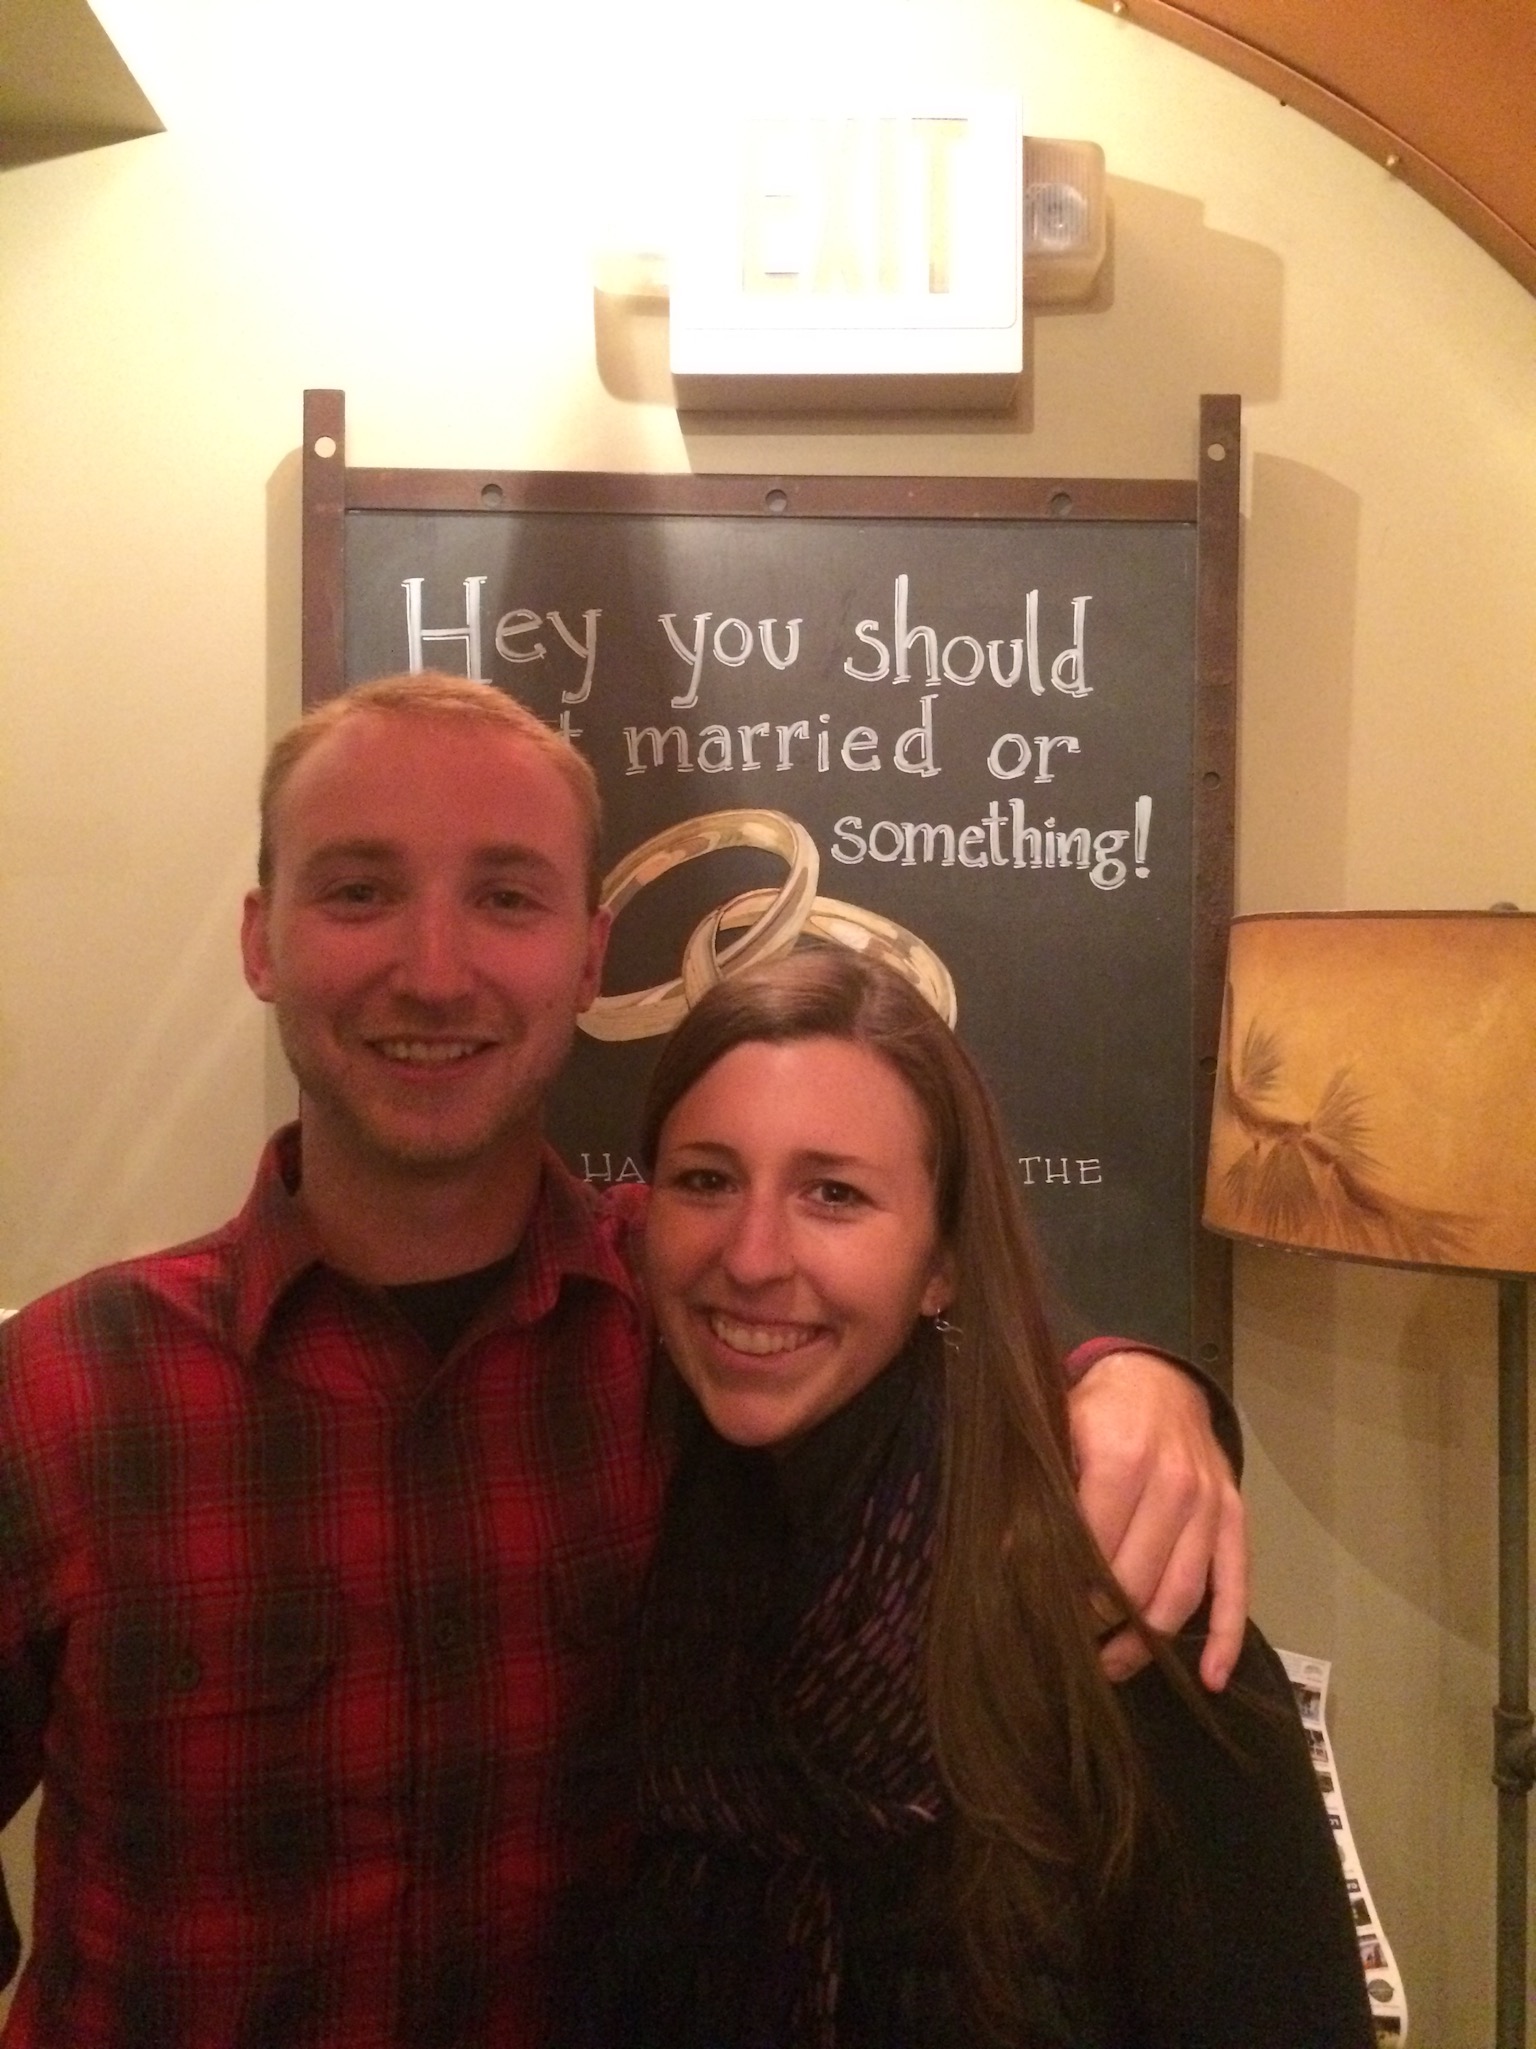 EXIT
Hey you should
married or
something!
THE